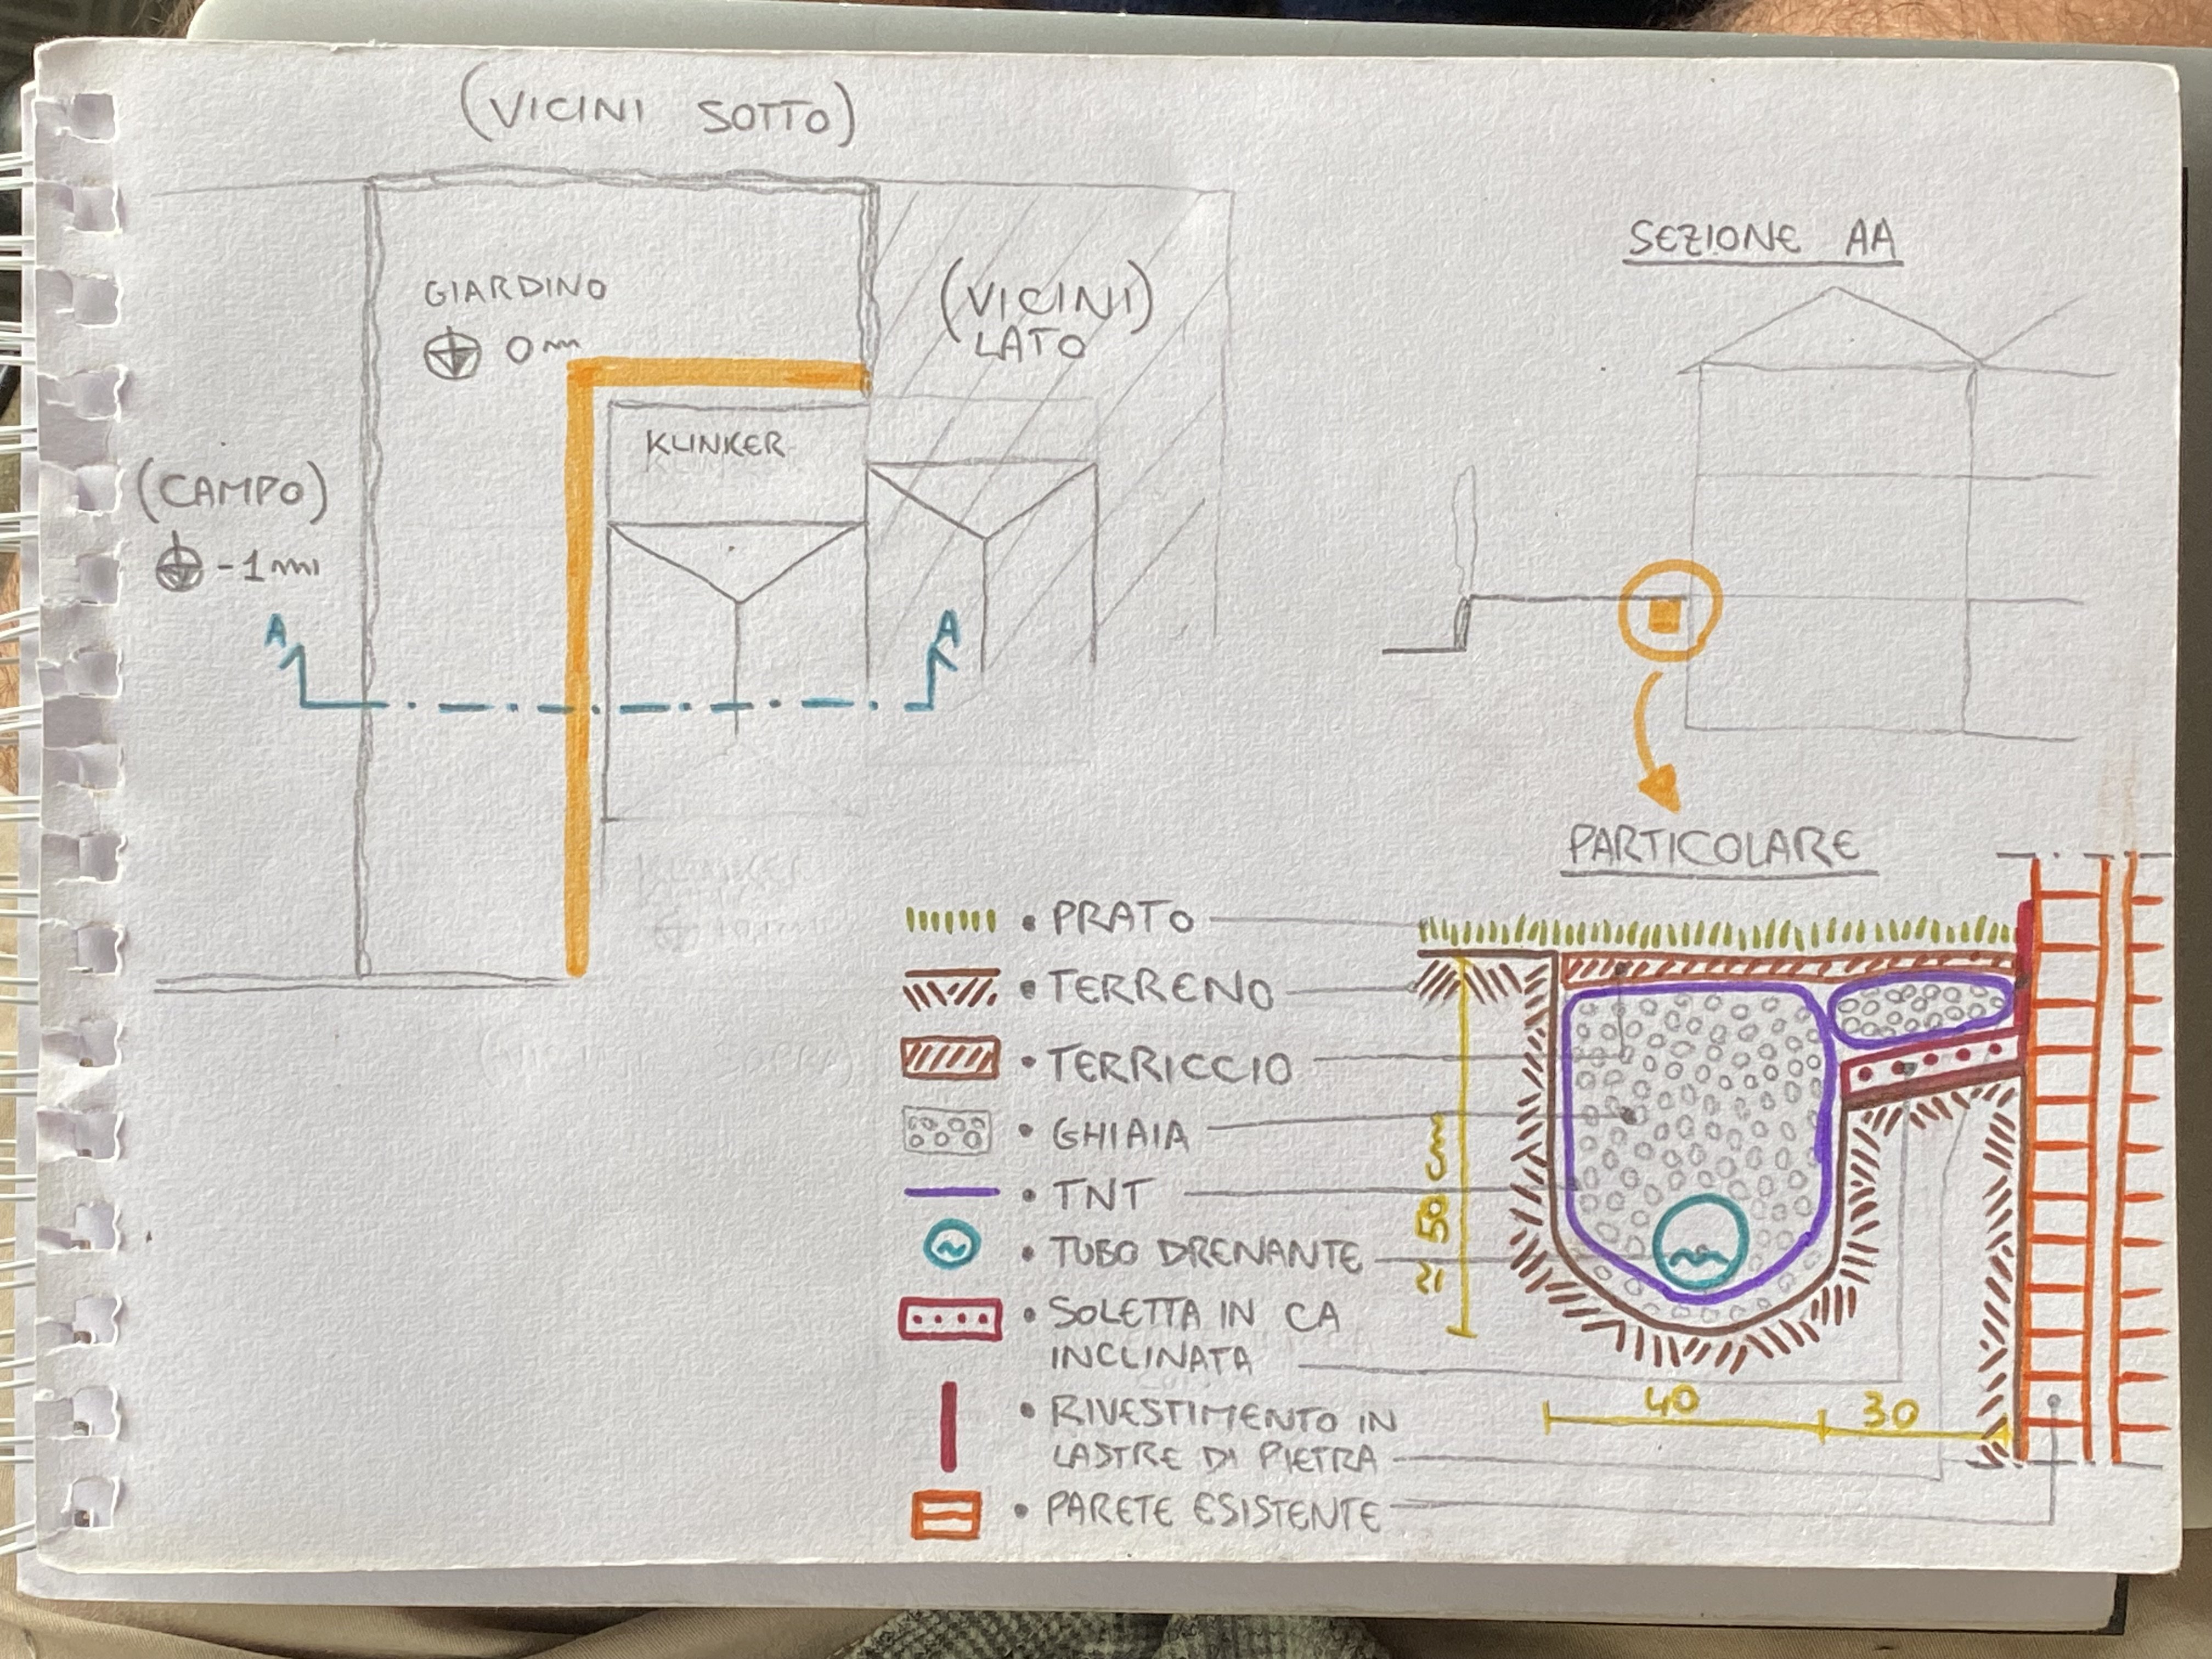 (VICINI SOTTO)
GIARDINO
0 m
(VICINI)
LATO
KLINKER
(CAMPO)
-1 m
A
A
KLINKER
SEZIONE AA
PARTICOLARE
• PRATO
• TERRENO
• TERRICCIO
• GHIAIA
• TNT
• TUBO DRENANTE
• SOLETTA IN CA
INCLINATA
• RIVESTIMENTO IN
LASTRE DI PIETRA
• PARETE ESISTENTE
≈ 50 cm
40
30